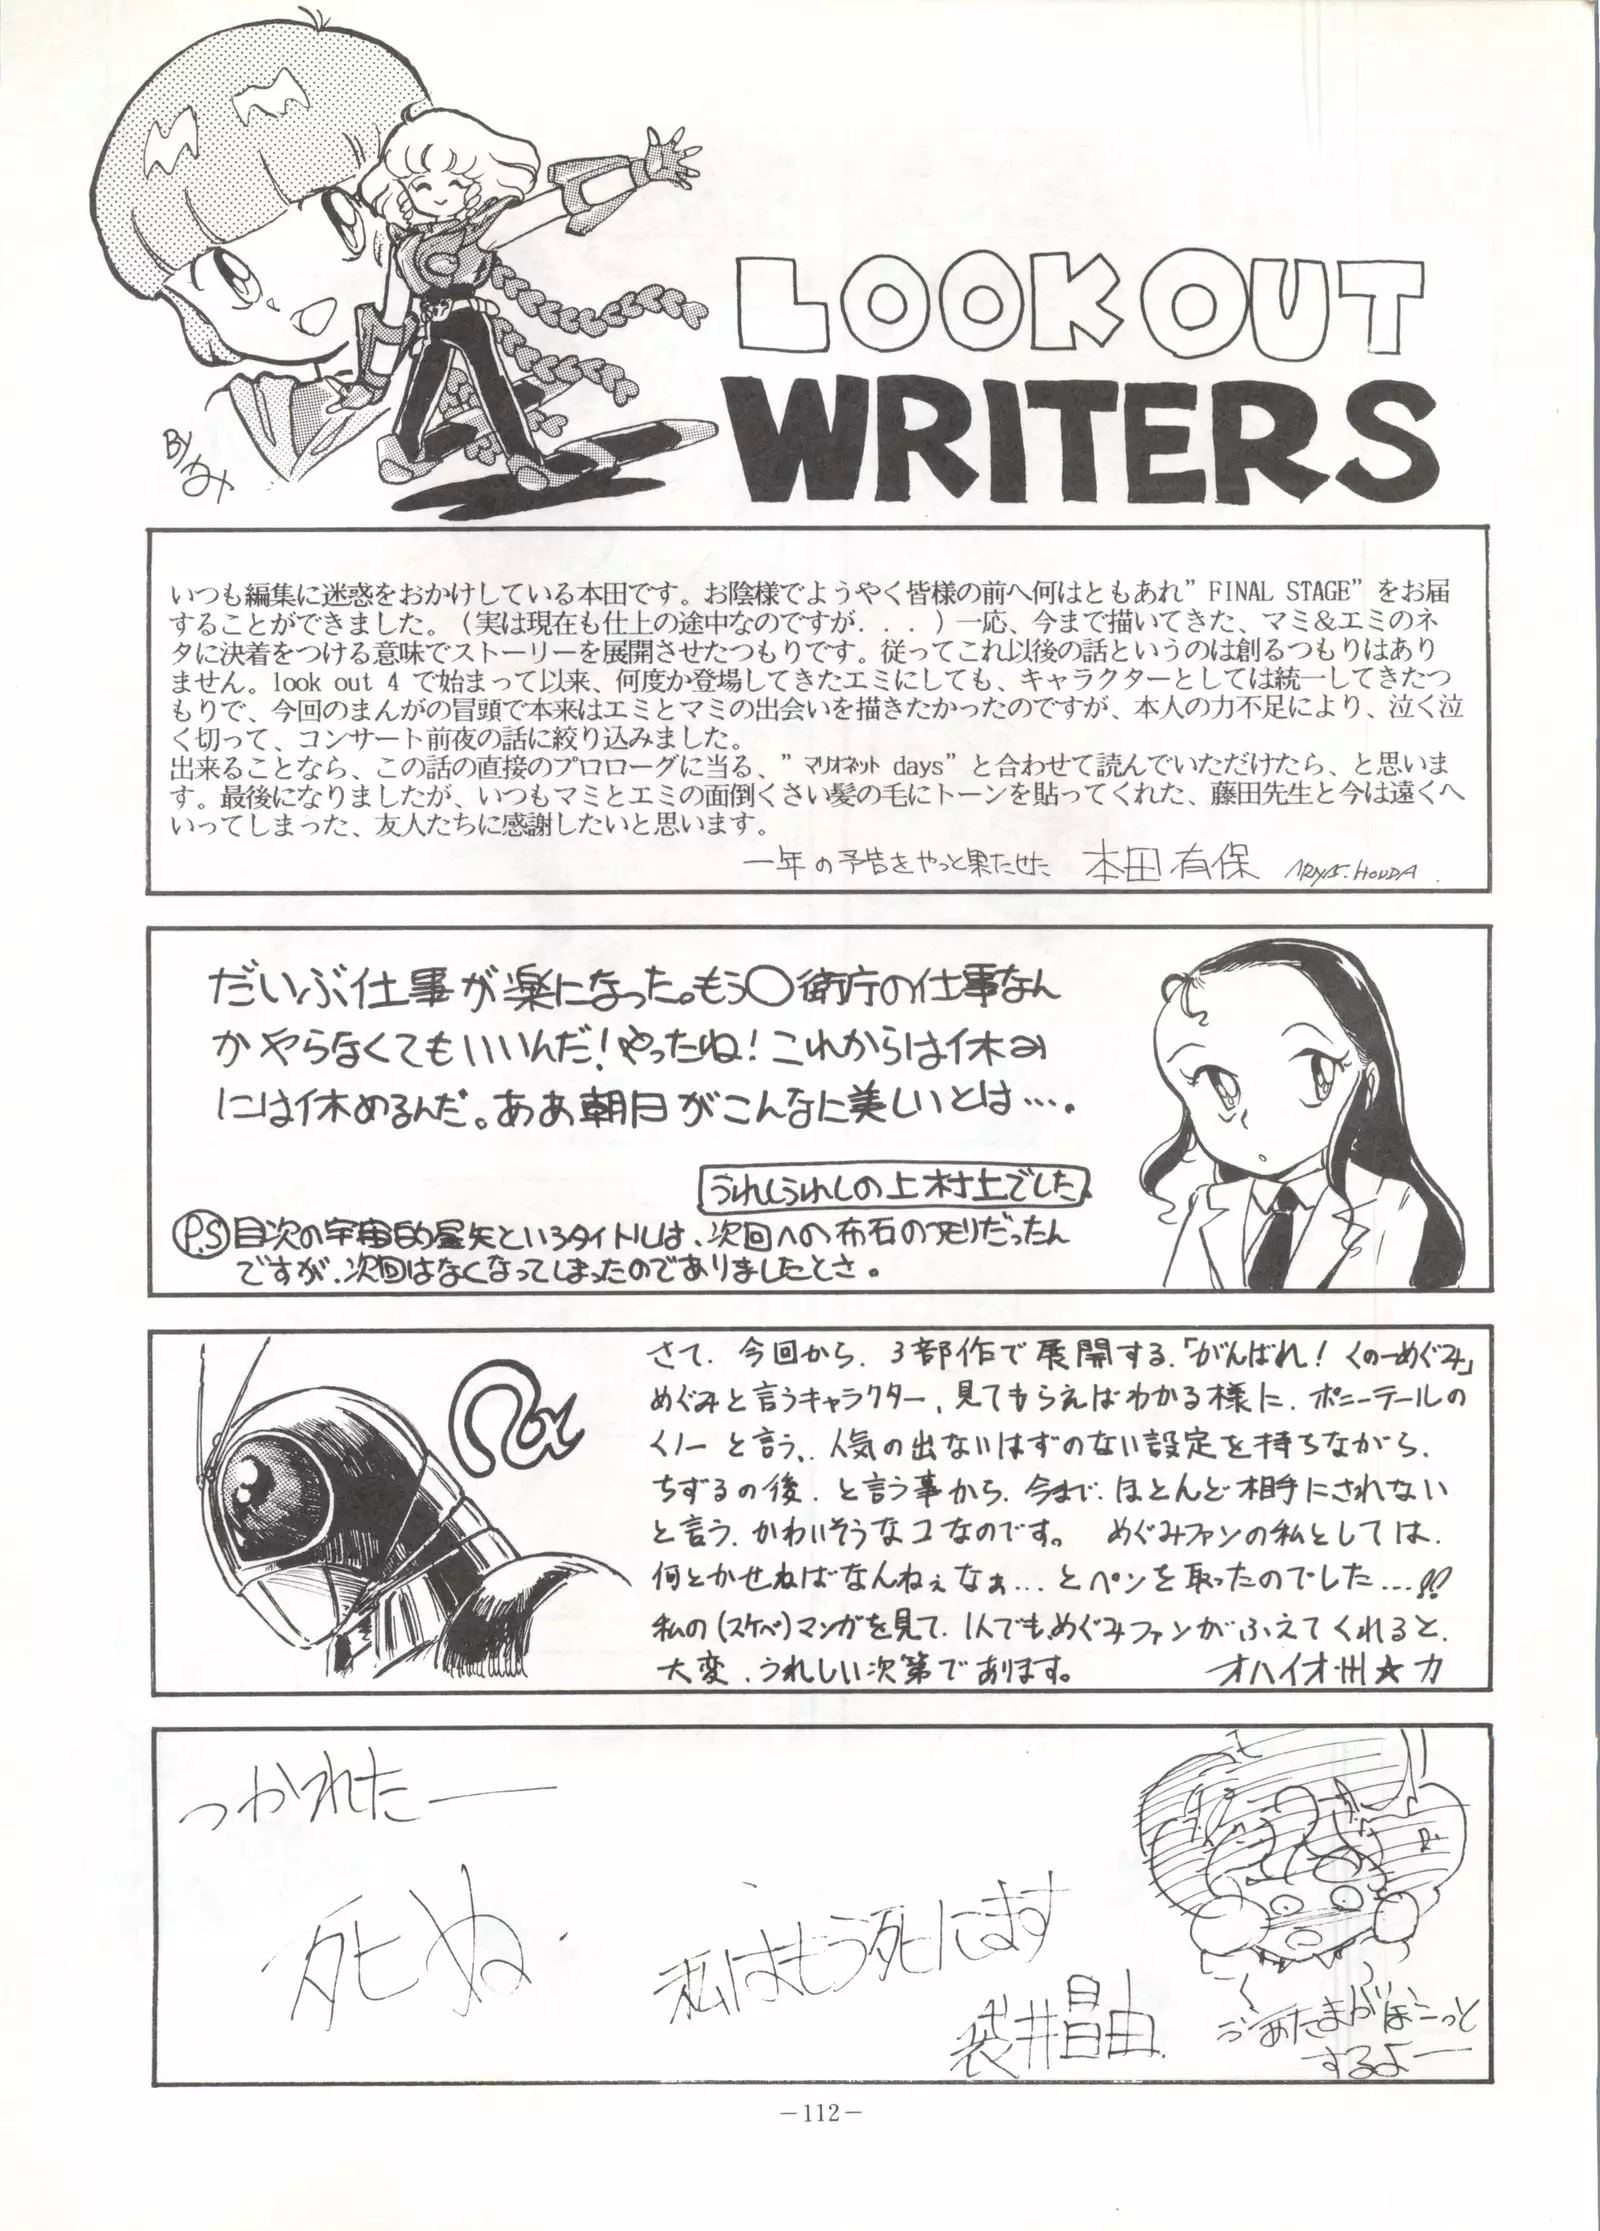 LOOK OUT
WRITERS
BY
いつも編集に迷惑をおかけしている本田です。お陰様でようやく皆様の前へ何はともあれ”FINAL STAGE”をお届
することができました。(実は現在も仕上の途中なのですが...)一応、今まで描いてきた、マミ&エミのネ
タに決着をつける意味でストーリーを展開させたつもりです。従ってこれ以後の話というのは創るつもりはあり
ません。look out 4 で始まって以来、何度か登場してきたエミにしても、キャラクターとしては統一してきたつ
もりで、今回のまんがの冒頭で本来はエミとマミの出会いを描きたかったのですが、本人の力不足により、泣く泣
く切って、コンサート前夜の話に絞り込みました。
出来ることなら、この話の直接のプロローグに当る、”マリオネット days”と合わせて読んでいただけたら、と思いま
す。最後になりましたが、いつもマミとエミの面倒くさい髪の毛にトーンを貼ってくれた、藤田先生と今は遠くへ
いってしまった、友人たちに感謝したいと思います。
一年の予告をやっと果たせた 本田 有保
だいぶ仕事が楽になった。もう〇衛庁の仕事なん
かやらなくてもいいんだ!やったね!これからは休み
には休めるんだ。ああ朝日がこんなに美しいとは…。
うれしうれしの上村上でした
P.S 目次の宇宙的星矢というタイトルは、次回への布石のつもりだったん
ですが、次回はなくなってしまったのでありましたとさ。
さて、今回から、3部作で展開する、「がんばれ! くのーめぐみ」
めぐみと言うキャラクター、見てもらえばわかる様に、ポニーテールの
くノ一と言う、人気の出ないはずのない設定を持ちながら、
ちずるの後、と言う事から、今まで、ほとんど相手にされない
と言う、かわいそうなコなのです。 めぐみファンの私としては、
何とかせねばなんねぇなぁ…とペンを取ったのでした…!!
私の(スケベ)マンガを見て、1人でも、めぐみファンがふえてくれると、
大変、うれしい次第であります。 オハイオ州☆力
つかれたー
死ぬ.
私はもう死にます
袋井昌由
あたまがぼこっと
するよー
－112－